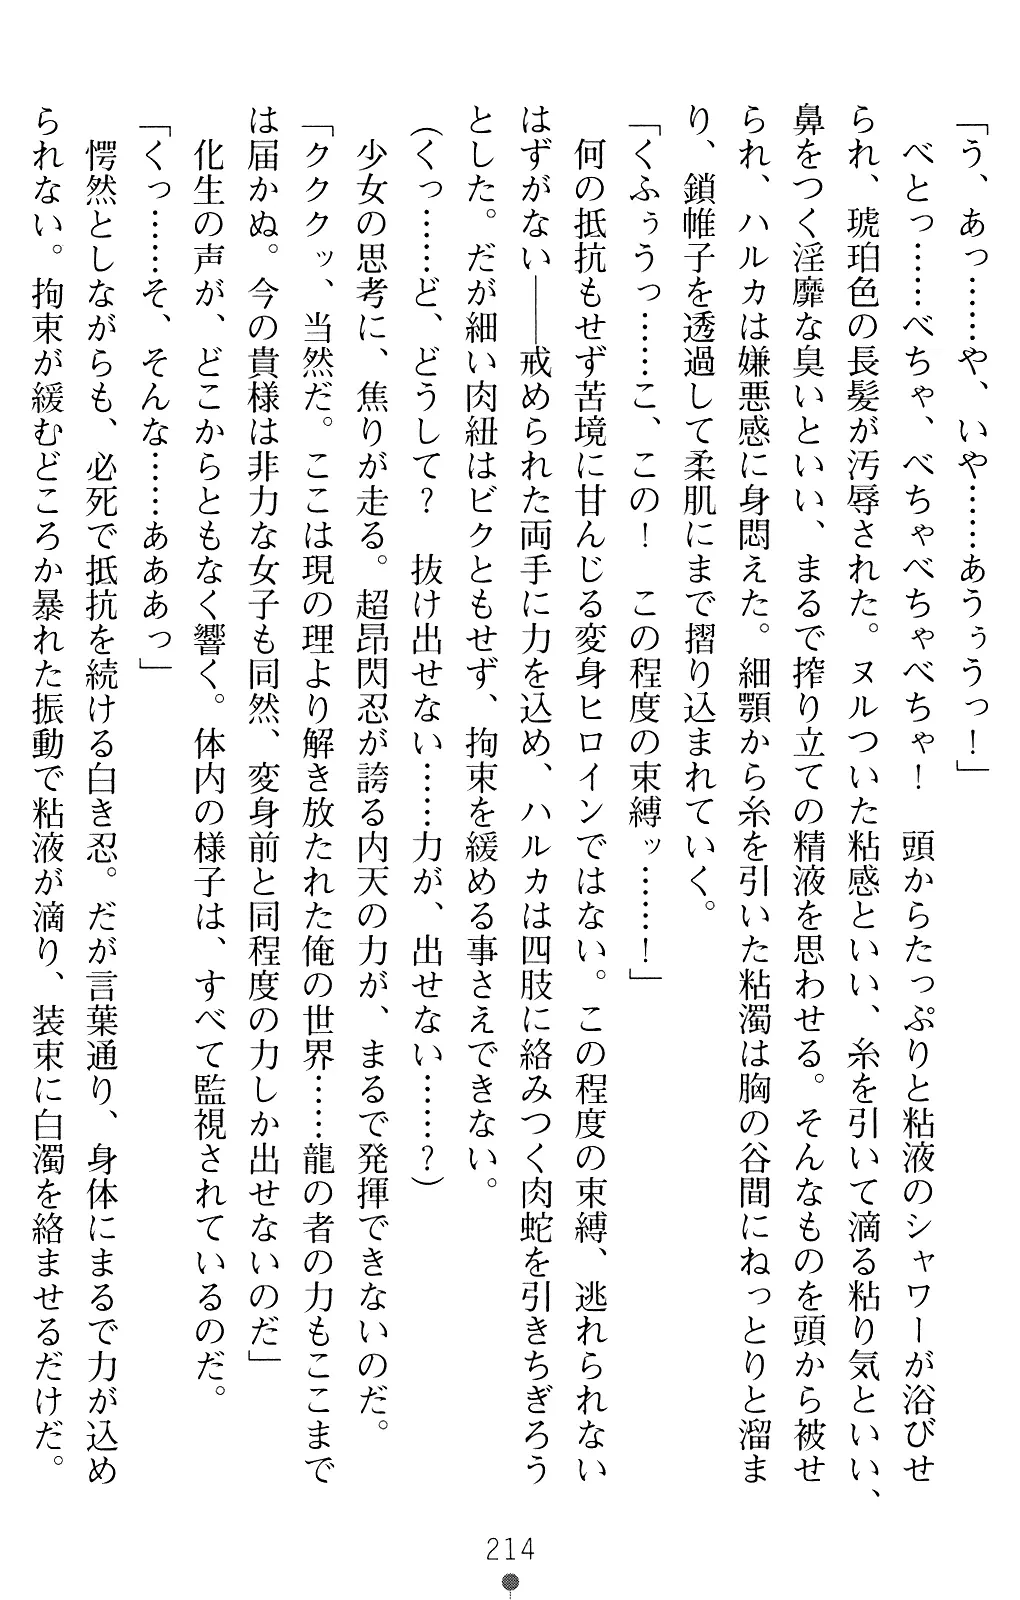 「う、あっ……や、いや……あうぅうっ！」
べとっ……べちゃ、べちゃべちゃべちゃ！　頭からたっぷりと粘液のシャワーが浴びせ
られ、琥珀色の長髪が汚辱された。ヌルついた粘感といい、糸を引いて滴る粘り気といい、
鼻をつく淫靡な臭いといい、まるで搾り立ての精液を思わせる。そんなものを頭から被せ
られ、ハルカは嫌悪感に身悶えた。細顎から糸を引いた粘濁は胸の谷間にねっとりと溜ま
り、鎖帷子を透過して柔肌にまで摺り込まれていく。
「くふぅうっ……こ、この！　この程度の束縛ッ……！」
何の抵抗もせず苦境に甘んじる変身ヒロインではない。この程度の束縛、逃れられない
はずがない――戒められた両手に力を込め、ハルカは四肢に絡みつく肉蛇を引きちぎろう
とした。だが細い肉紐はビクともせず、拘束を緩める事さえできない。
（くっ……ど、どうして？　抜け出せない……力が、出せない……？）
少女の思考に、焦りが走る。超昂閃忍が誇る内天の力が、まるで発揮できないのだ。
「ククク​ッ、当然だ。ここは現の理より解き放たれた俺の世界……龍の者の力もここまで
は届かぬ。今の貴様は非力な女子も同然、変身前と同程度の力しか出せないのだ」
化生の声が、どこからともなく響く。体内の様子は、すべて監視されているのだ。
「くっ……そ、そんな……あああっ」
愕然としながらも、必死で抵抗を続ける白き忍。だが言葉通り、身体にまるで力が込め
られない。拘束が緩むどころか暴れた振動で粘液が滴り、装束に白濁を絡ませるだけだ。
214